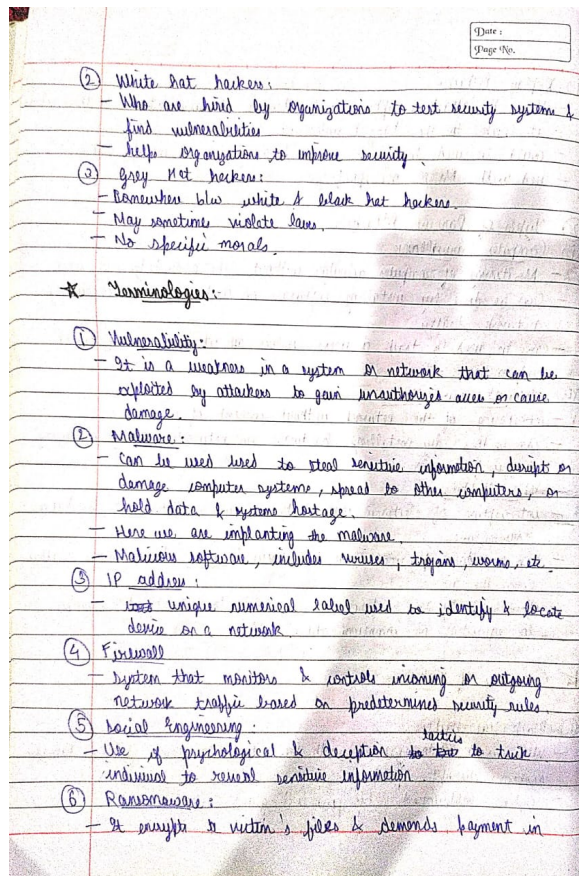 Date :
Page No.
② White hat hackers:
- Who are hired by organizations to test security system &
find vulnerabilities
- helps organizations to improve security.
③ Grey Hat hackers:
- Somewhere b/w white & black hat hackers.
- May sometime violate laws.
- No specific morals.
☆ Terminologies:-
① Vulnerability:
- It is a weakness in a system or network that can be
exploited by attackers to gain unauthorized access or cause
damage.
② Malware:
- Can be used used to steal sensitive information, disrupt or
damage computer systems, spread to other computers, or
hold data & systems hostage.
- Here we are implanting the malware.
- Malicious software, includes viruses, trojans, worms, etc.
③ IP address:
- unique numerical label used to identify & locate
device on a network.
④ Firewall
- System that monitors & controls incoming or outgoing
network traffic based on predetermined security rules.
⑤ Social Engineering:
- Use of psychological & deception tactics to trick
individual to reveal sensitive information.
⑥ Ransomware:
- It encrypts victim's files & demands payment in